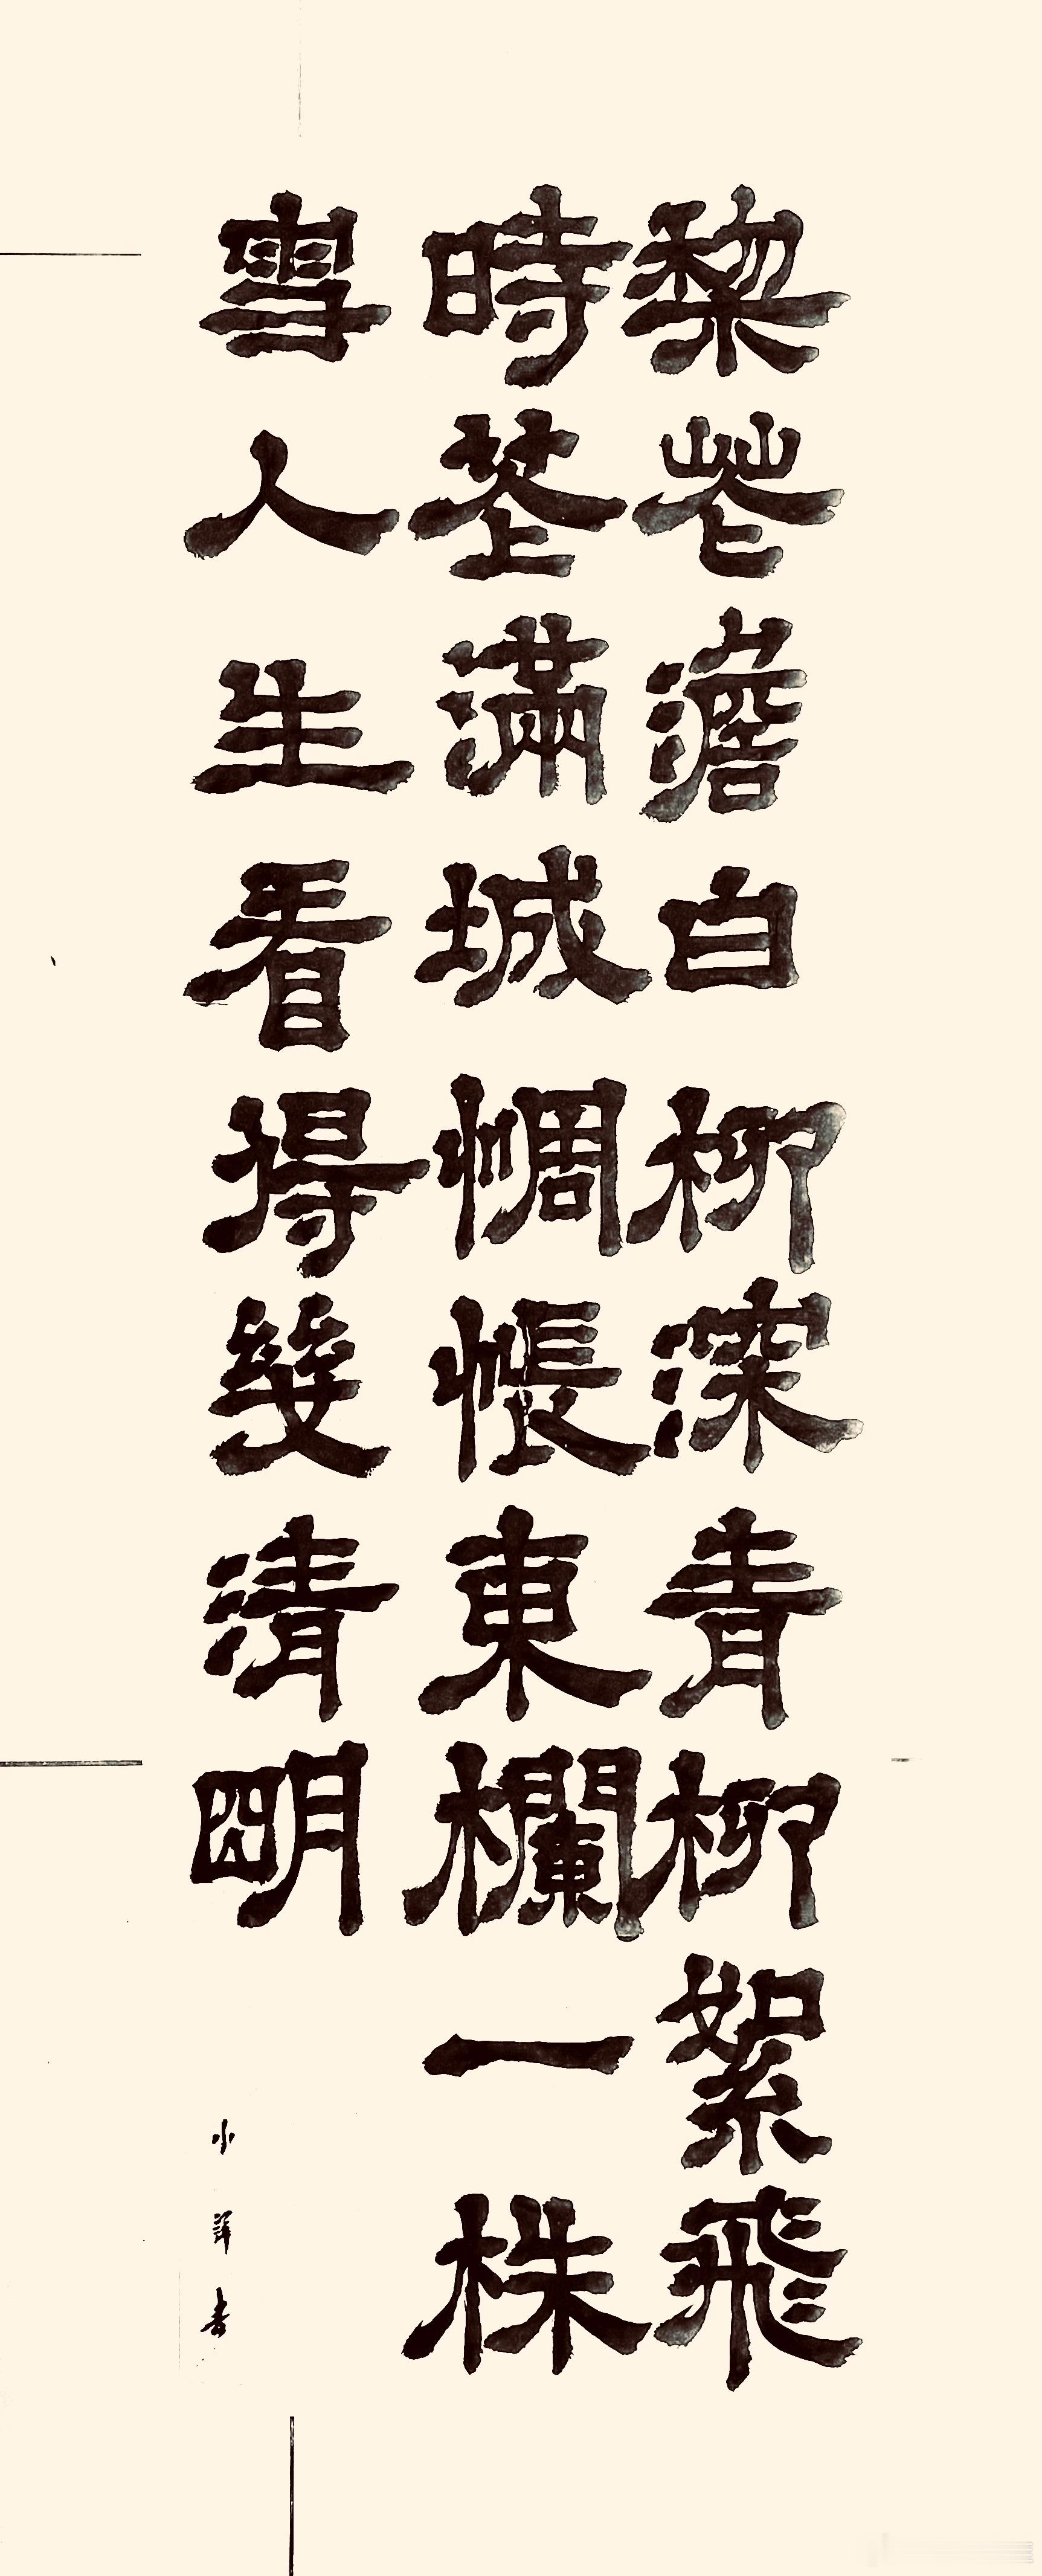 棃花澹白柳深青柳絮飛
時花滿城惆悵東欄一株
雪人生看得幾清朙
小書